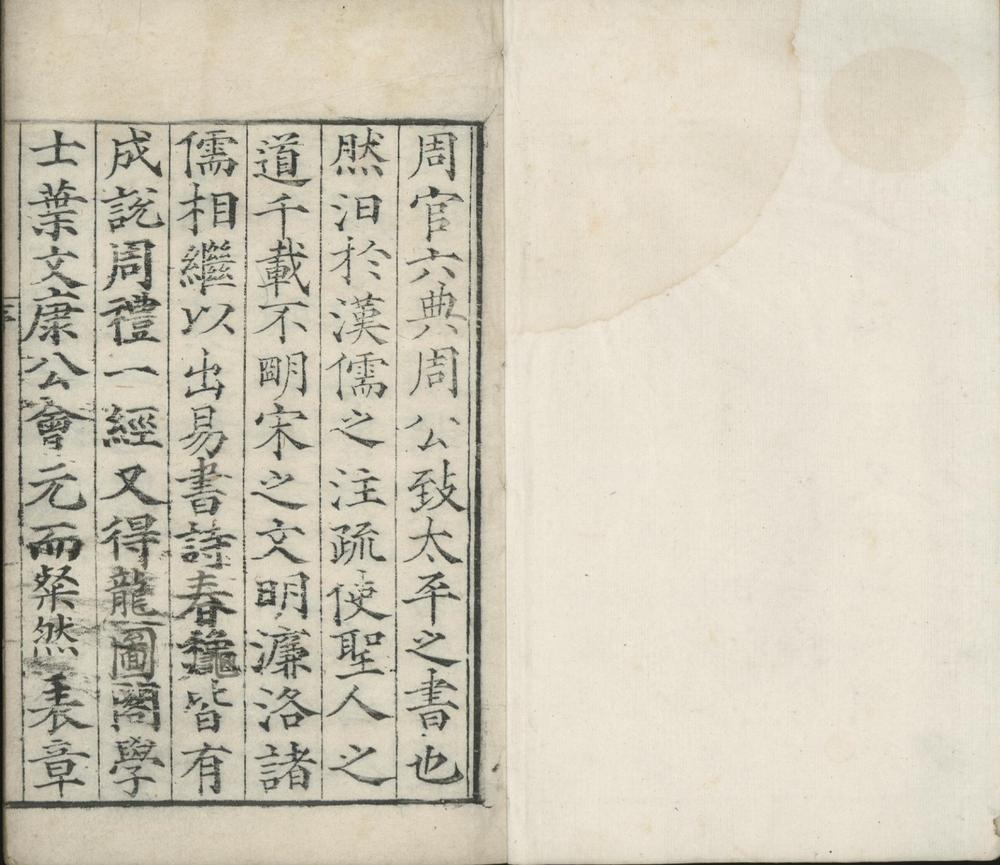 周官六典周公致太平之書也
然汨於漢儒之注疏使聖人之
道千載不明宋之文明濂洛諸
儒相繼以出易書詩春龝皆有
成說周禮一經又得龍圖閣學
士葉文康公會元而粲然表章